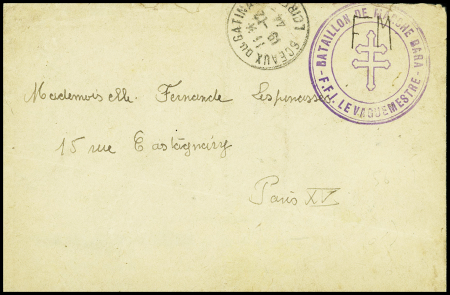 SCEAUX DU GATINAIS
LOIRET
F M
BATAILLON DE MARCHE BARA
- F.F.I. LE VAGUEMESTRE -
Mademoiselle Fernande Lespinasse
15 rue Castagnary
Paris XV